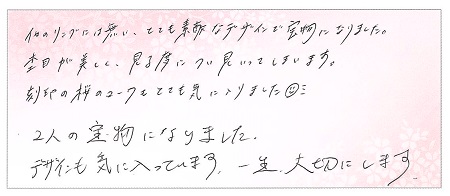 他のリングには無い、とても素敵なデザインで宝物になりました。
杢目が美しく、見る度につい見入ってしまいます。
刻印の桜のマークもとても気に入りました☺
2人の宝物になりました。
デザインも気に入っています。一生、大切にします